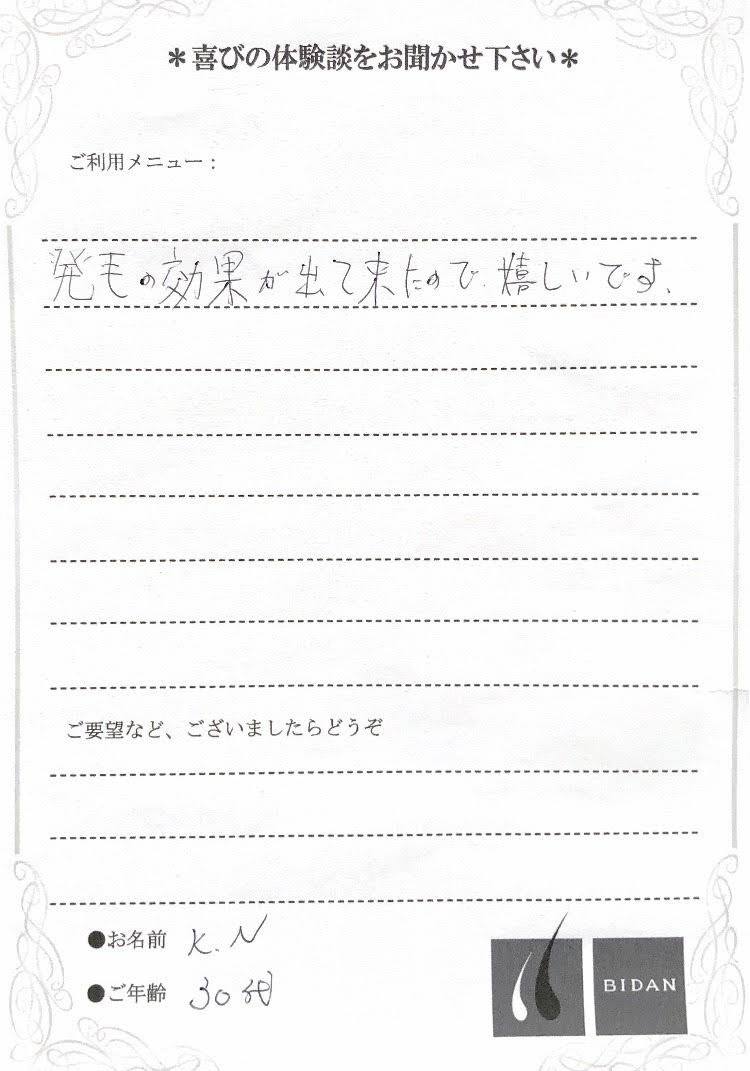 ＊喜びの体験談をお聞かせ下さい＊
ご利用メニュー：
発毛の効果が出て来たので、嬉しいです、
ご要望など、ございましたらどうぞ
●お名前 K.N
●ご年齢 30代
BIDAN